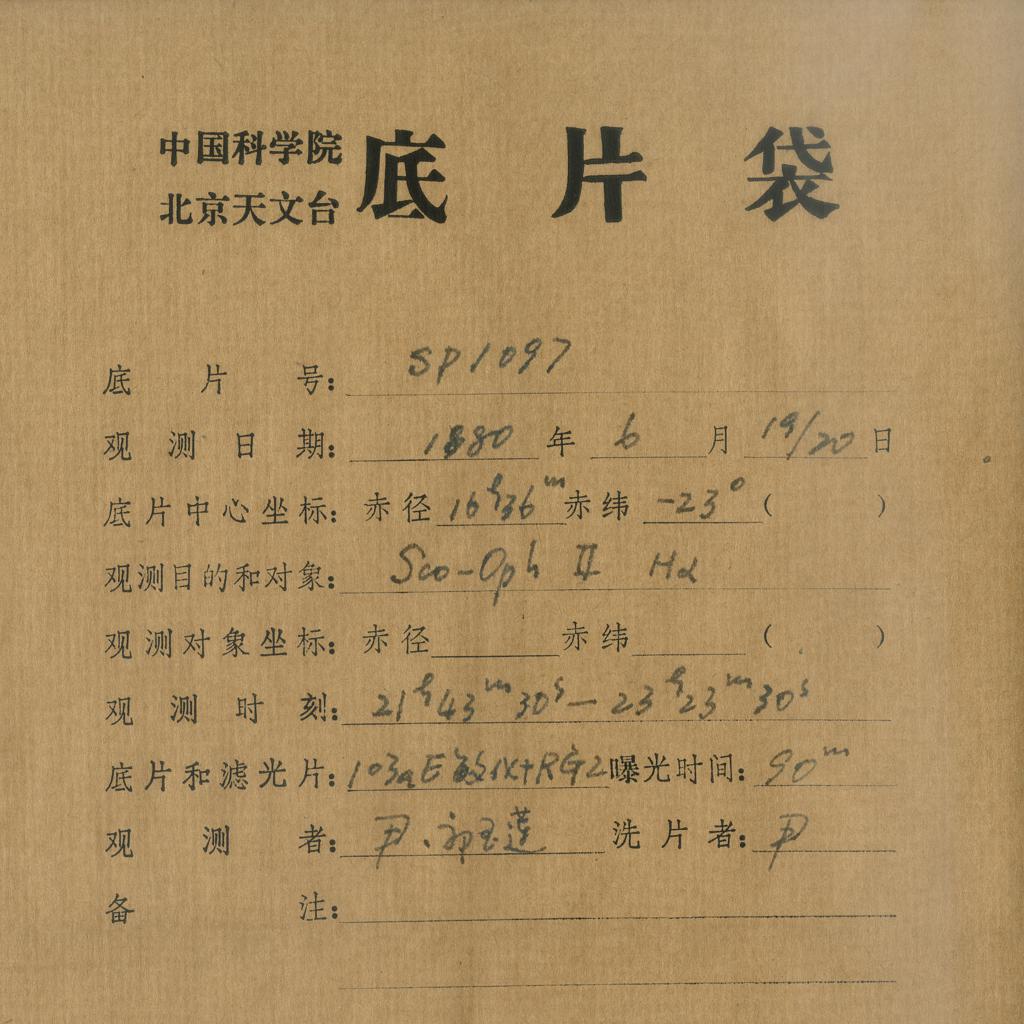 中国科学院
北京天文台
底片袋
底片号: SP1097
观测日期: 1980 年 6 月 19/20 日
底片中心坐标: 赤径 16h36m 赤纬 -23° ( )
观测目的和对象: Sco-Oph II Hα
观测对象坐标: 赤径 赤纬 ( )
观测时刻: 21h43m30s — 23h23m30s
底片和滤光片: 103aE敏化+RG2 曝光时间: 90m
观测者: 尹、郭玉莲 洗片者: 尹
备注: